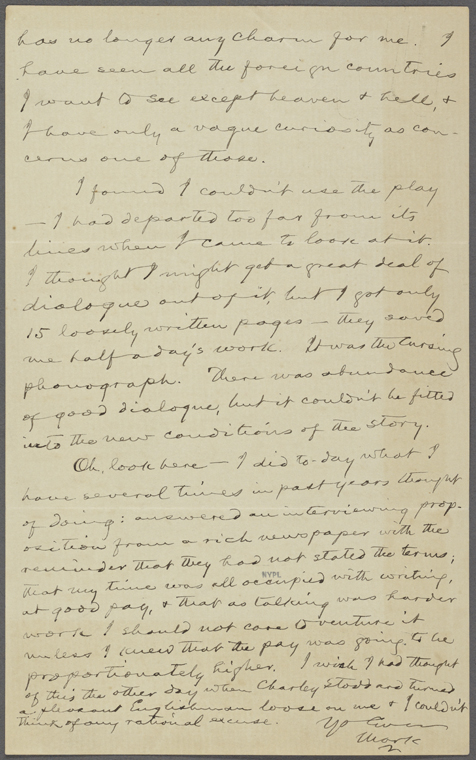 has no longer any charm for me. I
have seen all the foreign countries
I want to see except heaven & hell, &
I have only a vague curiosity as con-
cerns one of those.
I found I couldn't use the play
— I had departed too far from its
lines when I came to look at it.
I thought I might get a great deal of
dialogue out of it, but I got only
15 loosely written pages — they saved
me half a day's work. It was the cursing
phonograph. There was abundance
of good dialogue, but it couldn't be fitted
into the new conditions of the story.
Oh, look here — I did to-day what I
have several times in past years thought
of doing: answered an interviewing prop-
osition from a rich newspaper with the
reminder that they had not stated the terms;
that my time was all occupied with writing,
NYPL
at good pay, & that as talking was harder
work I should not care to venture it
unless I knew that the pay was going to be
proportionately higher. I wish I had thought
of this the other day when Charley Stoddard turned
a pleasant Englishman loose on me & I couldn't
think of any rational excuse.
Ys Ever
Mark